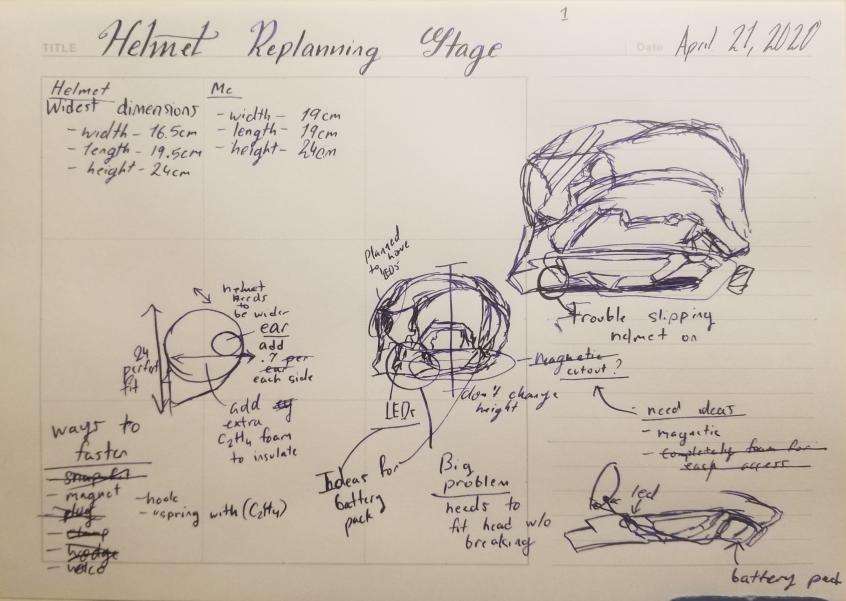 1
TITLE Helmet Replanning Stage
Date April 21, 2020
Helmet
Widest dimensions
- width - 16.5cm
- length - 19.5cm
- height - 24cm
Me
- width - 19cm
- length - 19cm
- height - 24cm
planned
to have
LEDs
helmet
needs
to
be wider
ear
add
.7 per
ear
each side
24
perfect
fit
add
extra
C2H4 foam
to insulate
Trouble slipping
helmet on
magnetic
cutout?
don't change
height
LEDs
need ideas
- magnetic
- completely foam for
easy access
ways to
fasten
- snap fit
- magnet
- plug
- clamp
- wedge
- velco
- hook
- "spring with (C2H4)
Ideas for
battery
pack
Big
problem
needs to
fit head w/o
breaking
led
battery pack